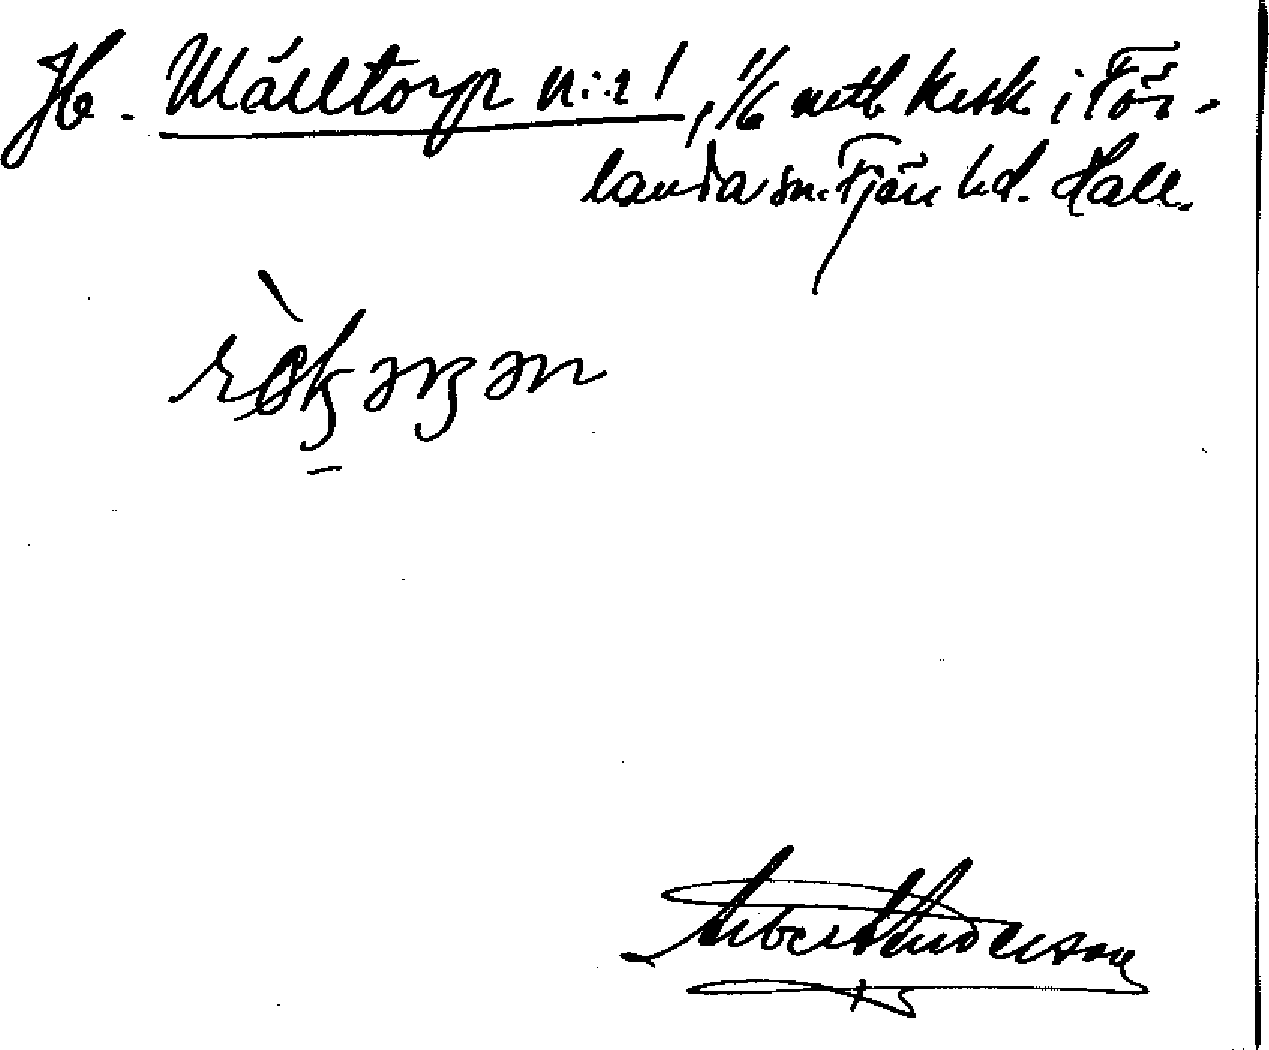 Hb. Målltorp n:r 1, 1/6 mtl krsk i För-
landa sn. Fjäre hd. Hall.
Albert Anderson